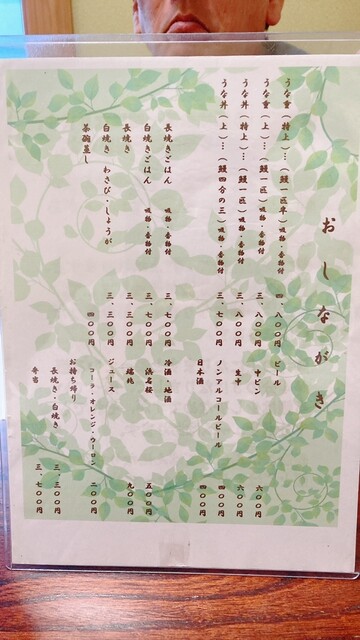 おしながき
うな重(特上)…(鰻一匹半)吸物・香物付 四、八〇〇円
うな重(上)…(鰻一匹)吸物・香物付 三、八〇〇円
うな丼(特上)…(鰻一匹)吸物・香物付 三、八〇〇円
うな丼(上)…(鰻四分の三)吸物・香物付 三、一〇〇円
長焼きごはん 吸物・香物付 三、七〇〇円
白焼きごはん 吸物・香物付 三、七〇〇円
長焼き 三、三〇〇円
白焼き わさび・しょうが 三、三〇〇円
茶碗蒸し 四〇〇円
ビール
中ビン 六〇〇円
生中 六〇〇円
ノンアルコールビール 四〇〇円
日本酒 四〇〇円
冷酒・地酒
浜名桜 五〇〇円
九〇〇円
ジュース
コーラ・オレンジ・ウーロン 二〇〇円
お持ち帰り
長焼き・白焼き 三、三〇〇円
弁当 三、七〇〇円